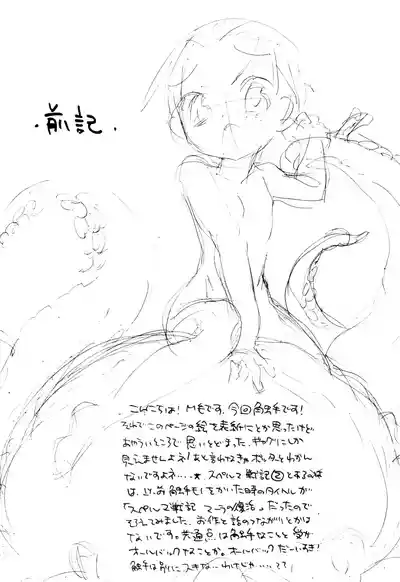 ・前記・
こんにちは！M毛です。今回触手です！
それでこのページの絵を表紙にとか思ったけど、
あやういところで思いとどまった。ギャグにしか
見えませんよネ！あと言わなきゃ
ないですよネ……★ スペルマ戦記②とあるのは
は、以前触手モノをかいた時のタイトルが
「スペルマ戦記
の復活」だったので
そろえてみました。お作と話のつながりとかは
ないです。共通点は触手なことと受が
オールバックなことか。オールバックだーいすき！
触手は別にスキな……わけじゃ……て て